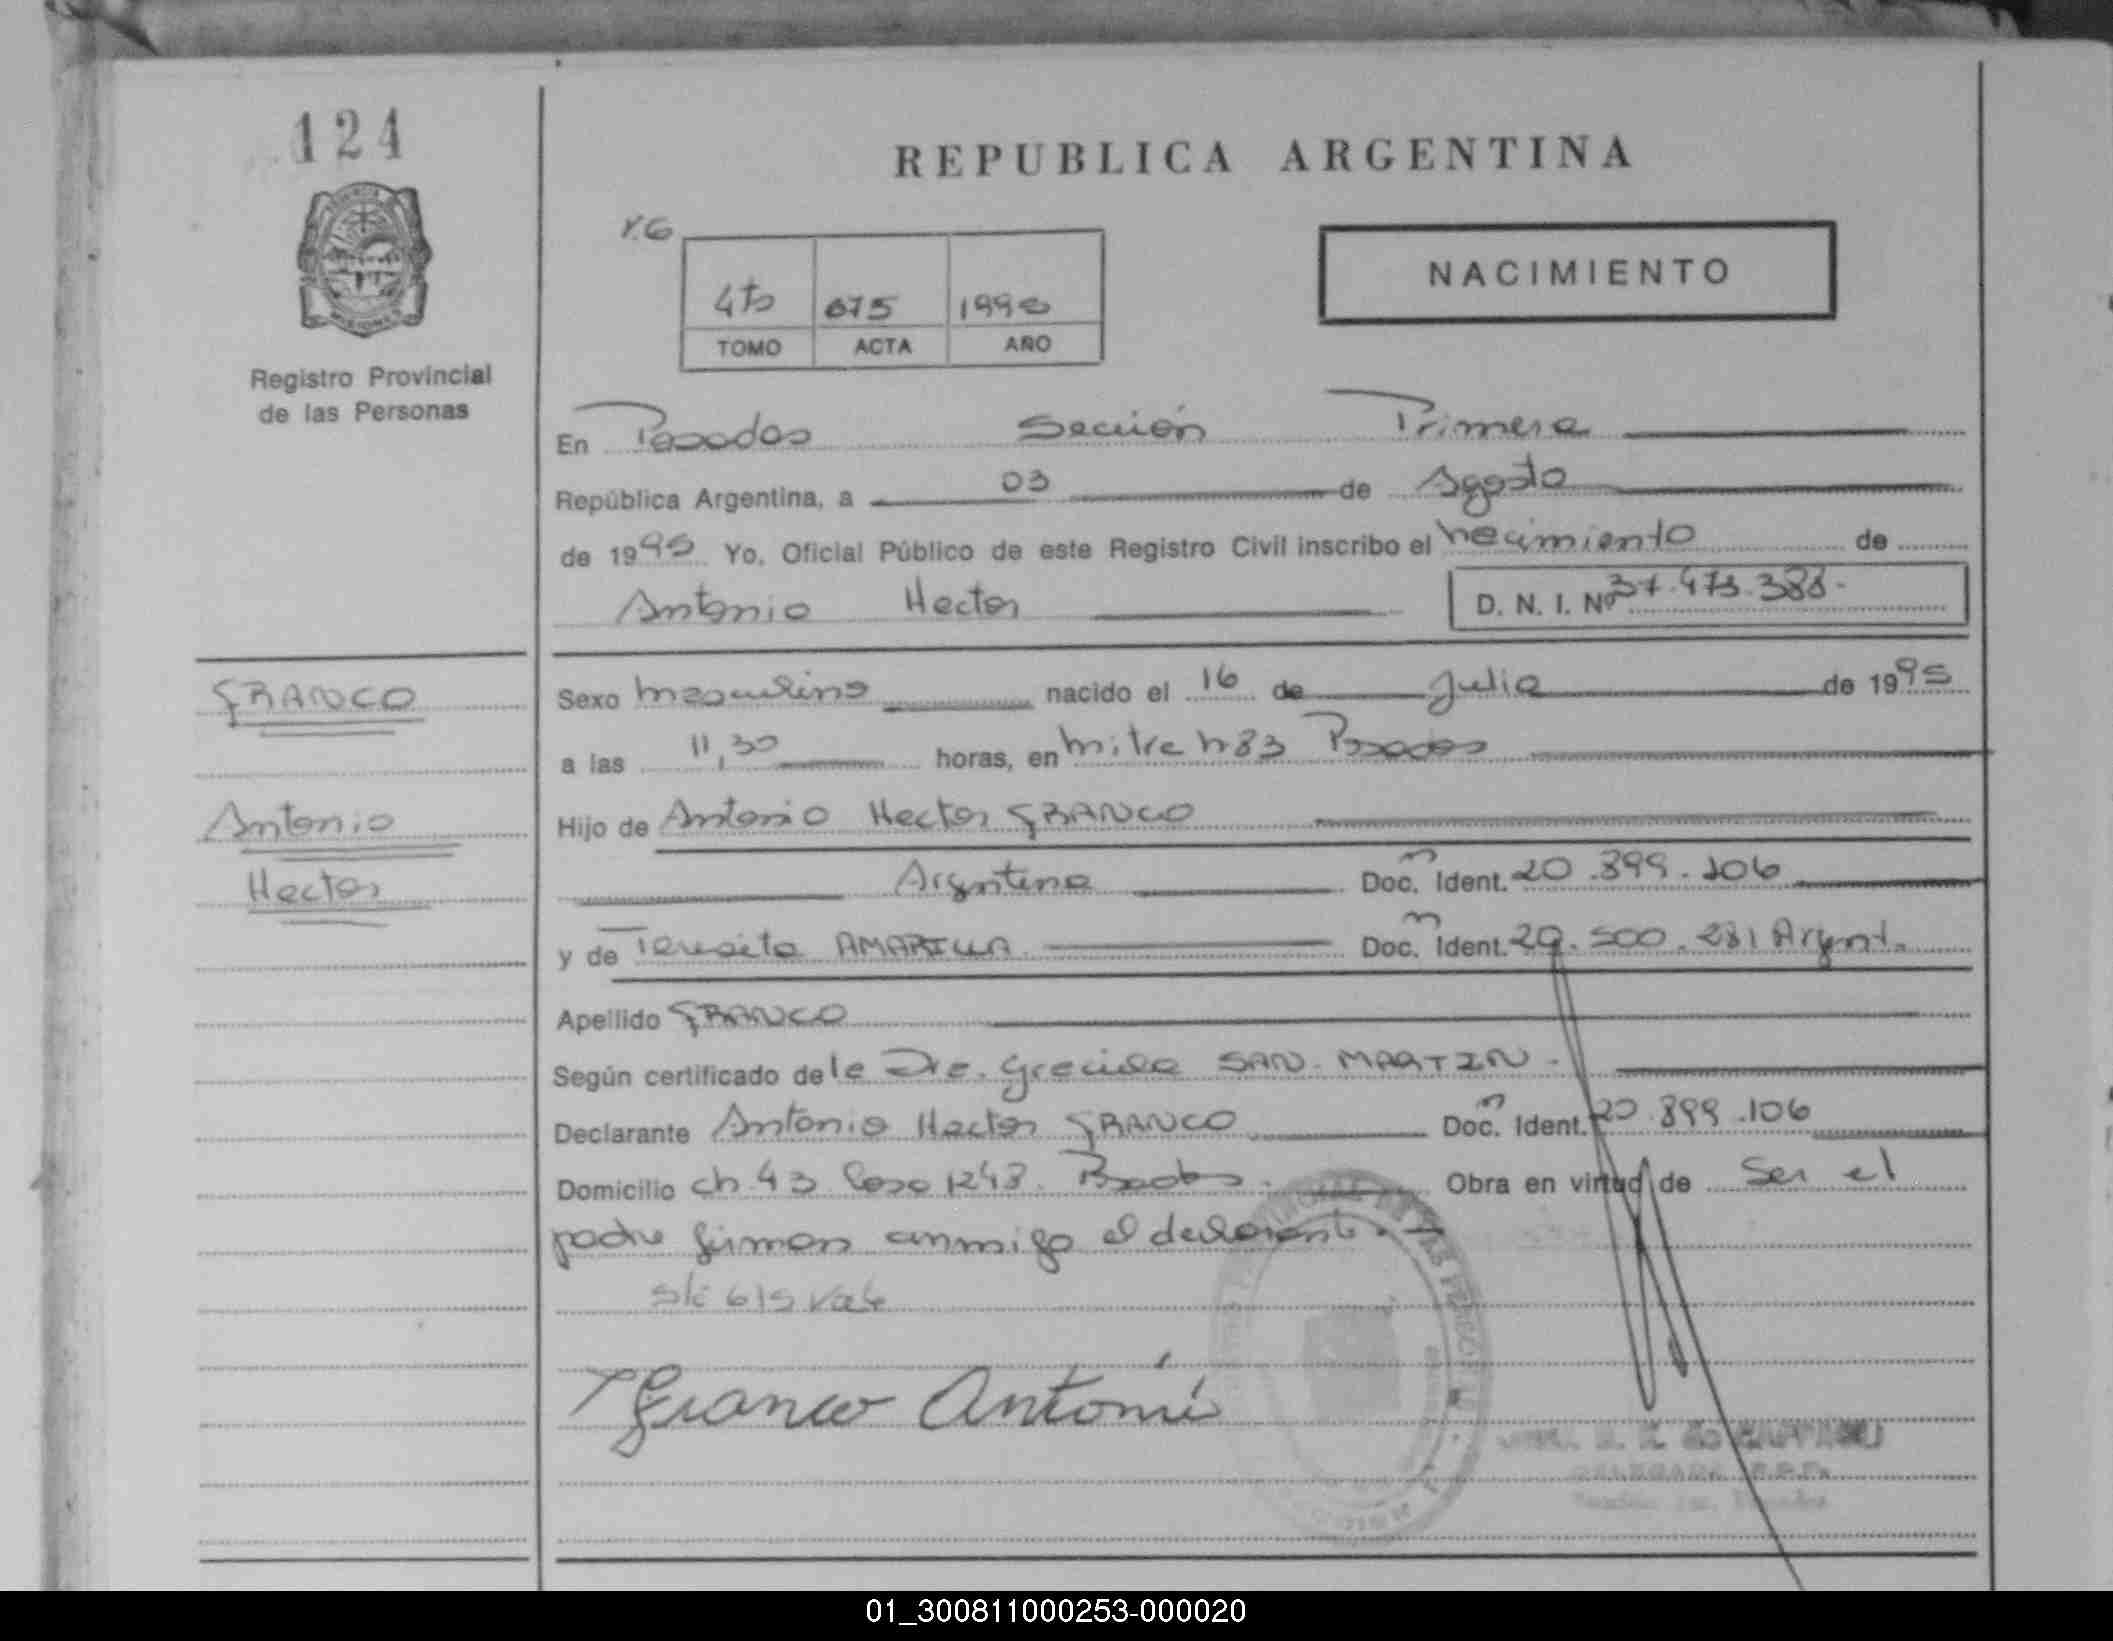 124
REPUBLICA ARGENTINA
NACIMIENTO
4to 675 1995
TOMO ACTA AÑO
Registro Provincial
de las Personas
En Posadas Sección Primera
República Argentina, a 03 de Agosto
de 1995 Yo, Oficial Público de este Registro Civil inscribo el nacimiento de
Antonio Hector D. N. I. Nº 37.473.388.
FRANCO
Antonio
Hector
Sexo masculino nacido el 16 de Julio de 1995
a las 11,30 horas, en Mitre n 83 Posadas
Hijo de Antonio Hector FRANCO
Argentina Doc. Ident. 20.899.106
y de Teresita AMARILLA Doc. Ident. 29.500.281 Argent.
Apellido FRANCO
Según certificado de la Dra. Graciela SAN MARTIN.
Declarante Antonio Hector FRANCO Doc. Ident. 20.899.106
Domicilio ch 43 Casa 1248. Posadas. Obra en virtud de Ser el
padre firman conmigo el declarante.
Franco Antonio
01_300811000253-000020